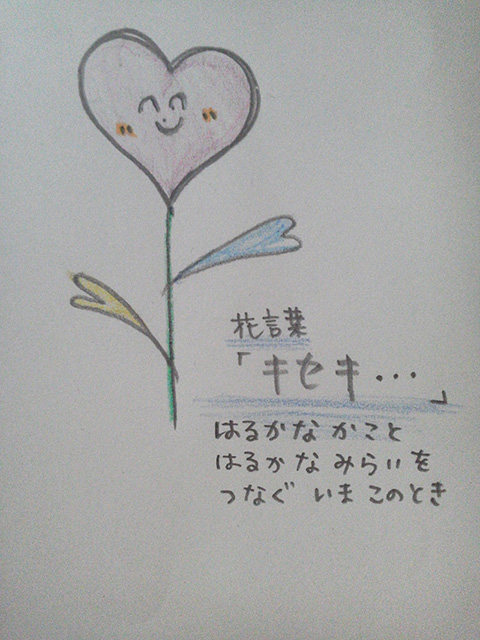 花言葉
「キセキ・・・」
はるかな かこと
はるかな みらいを
つなぐ いま このとき